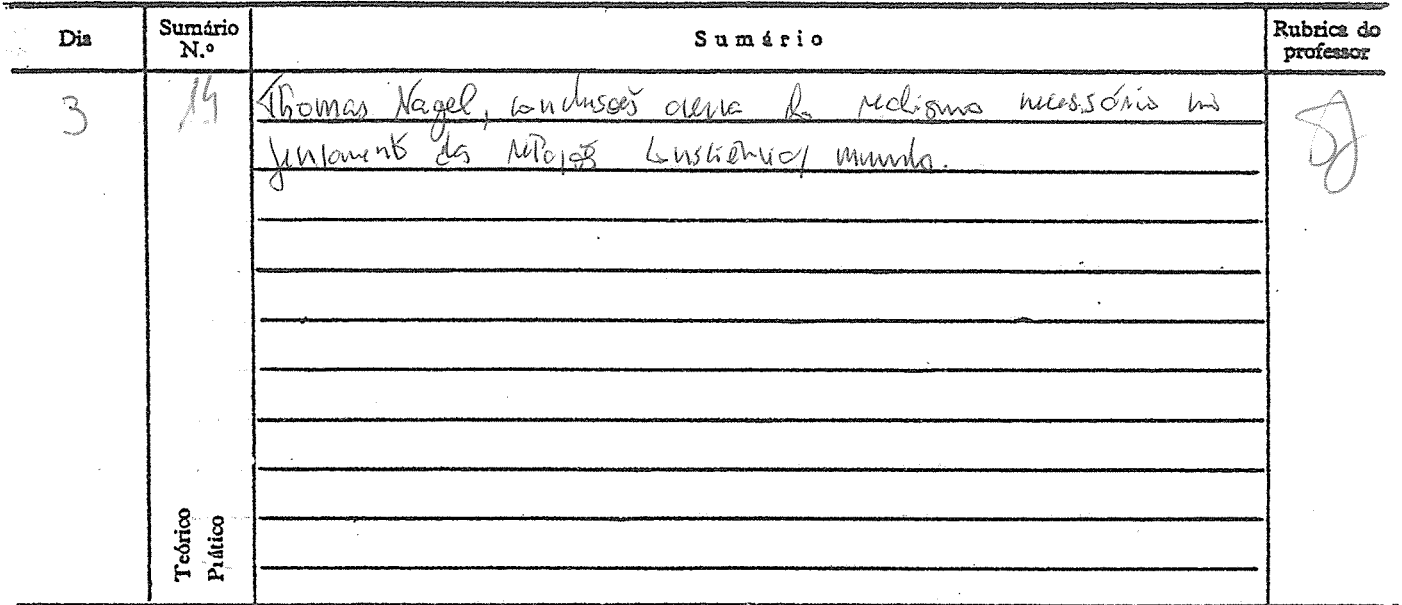 Dia
Sumário N.º
Sumário
Rubrica do professor
3
14
Thomas Nagel, conclusões acerca do realismo necessário no
da relação consciência/mundo.
Teórico
Prático